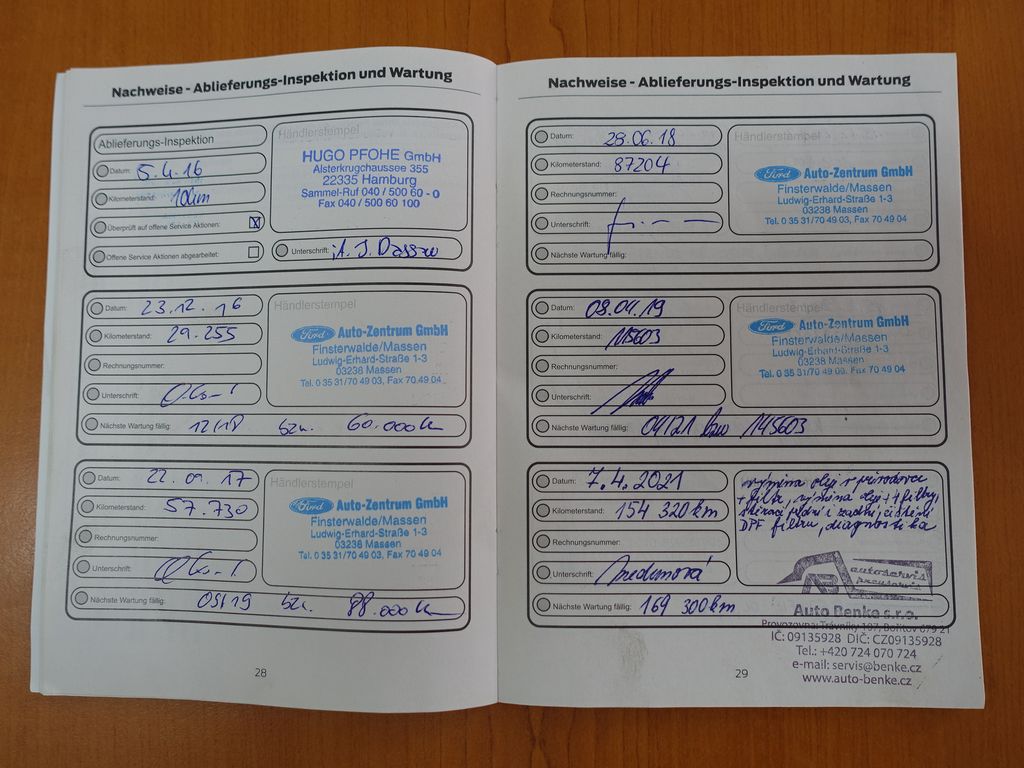 Nachweise - Ablieferungs-Inspektion und Wartung
Ablieferungs-Inspektion
Datum: 5.4.16
Kilometerstand: 10km
Überprüft auf offene Service Aktionen: X
Offene Service Aktionen abgearbeitet:
Händlerstempel
HUGO PFOHE GmbH
Alsterkrugchaussee 355
22335 Hamburg
Sammel-Ruf 040 / 500 60 - 0
Fax 040 / 500 60 100
Unterschrift:
Datum: 23.12.16
Kilometerstand: 29.255
Rechnungsnummer:
Unterschrift:
Nächste Wartung fällig: 12/18 bzw. 60.000km
Händlerstempel
Ford Auto-Zentrum GmbH
Finsterwalde/Massen
Ludwig-Erhard-Straße 1-3
03238 Massen
Tel. 0 35 31/70 49 03, Fax 70 49 04
Datum: 22.09.17
Kilometerstand: 57.730
Rechnungsnummer:
Unterschrift:
Nächste Wartung fällig: 09/19 bzw. 88.000km
Händlerstempel
Ford Auto-Zentrum GmbH
Finsterwalde/Massen
Ludwig-Erhard-Straße 1-3
03238 Massen
Tel. 0 35 31/70 49 03, Fax 70 49 04
28
Nachweise - Ablieferungs-Inspektion und Wartung
Datum: 28.06.18
Kilometerstand: 87204
Rechnungsnummer:
Unterschrift:
Nächste Wartung fällig:
Händlerstempel
Ford Auto-Zentrum GmbH
Finsterwalde/Massen
Ludwig-Erhard-Straße 1-3
03238 Massen
Tel. 0 35 31/70 49 03, Fax 70 49 04
Datum: 08.04.19
Kilometerstand: 115603
Rechnungsnummer:
Unterschrift:
Nächste Wartung fällig: 04/21 bzw 145603
Händlerstempel
Ford Auto-Zentrum GmbH
Finsterwalde/Massen
Ludwig-Erhard-Straße 1-3
03238 Massen
Tel. 0 35 31/70 49 03, Fax 70 49 04
Datum: 7.4.2021
Kilometerstand: 154 320 km
Rechnungsnummer:
Unterschrift:
Nächste Wartung fällig: 169 300 km
výměna oleje v převodovce
+ filtr, výměna oleje + filtry,
stěrače přední i zadní, čištění
DPF filtru, diagnostika
autoservis
pneuservis
Auto Benke s.r.o.
Provozovna: Trávníky 107, Bořitov 679 21
IČ: 09135928 DIČ: CZ09135928
Tel.: +420 724 070 724
e-mail: servis@benke.cz
www.auto-benke.cz
29